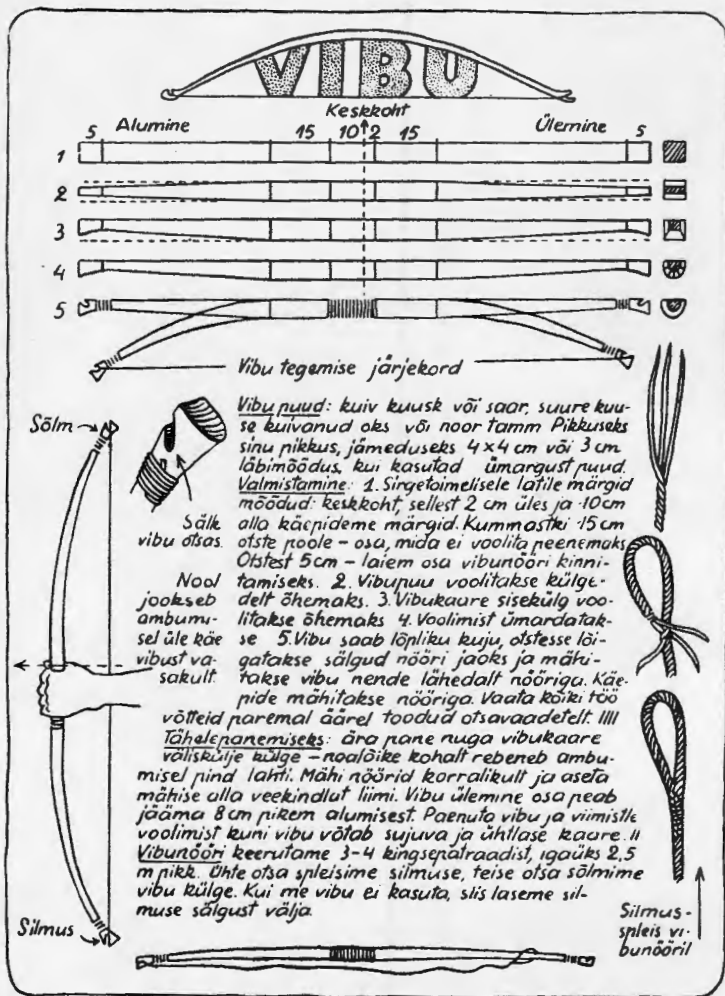 VIBU
Keskkoht
5 Alumine 15 10 2 15 Ülemine 5
1
2
3
4
5
Vibu tegemise järjekord
Sõlm
Sälk
vibu otsas.
Nool
jookseb
ambumi-
sel üle käe
vibust va-
sakult.
Silmus
Vibu puud: kuiv kuusk või saar, suure kuu-
se kuivanud oks või noor tamm Pikkuseks
sinu pikkus, jämeduseks 4×4 cm või 3 cm
läbimõõdus, kui kasutad ümargust puud.
Valmistamine: 1. Sirgetoimelisele latile märgid
mõõdud: keskkoht, sellest 2 cm üles ja 10 cm
alla käepideme märgid. Kummastki 15 cm
otste poole – osa, mida ei voolita peenemaks
Otstest 5 cm – laiem osa vibunööri kinni-
tamiseks. 2. Vibupuu voolitakse külge-
delt õhemaks. 3. Vibukaare sisekülg voo-
litakse õhemaks 4. Voolimist ümardatak-
se 5. Vibu saab lõpliku kuju, otstesse lõi-
gatakse sälgud nööri jaoks ja mähi-
takse vibu nende lähedalt nööriga. Käe-
pide mähitakse nööriga. Vaata kõiki töö
võtteid paremal äärel toodud otsavaadetelt. ////
Tähelepanemiseks: ära pane nuga vibukaare
väliskülje külge – noalõike kohalt rebeneb ambu-
misel pind lahti. Mähi nöörid korralikult ja aseta
mähise alla veekindlut liimi. Vibu ülemine osa peab
jääma 8 cm pikem alumisest. Paenuta vibu ja viimistle
voolimist kuni vibu võtab sujuva ja ühtlase kaare. //
Vibunööri keerutame 3–4 kingsepatraadist, igaüks 2,5
m pikk. Ühte otsa spleisime silmuse, teise otsa sõlmime
vibu külge. Kui me vibu ei kasuta, siis laseme sil-
muse sälgust välja.
Silmus-
spleis vi-
bunööril